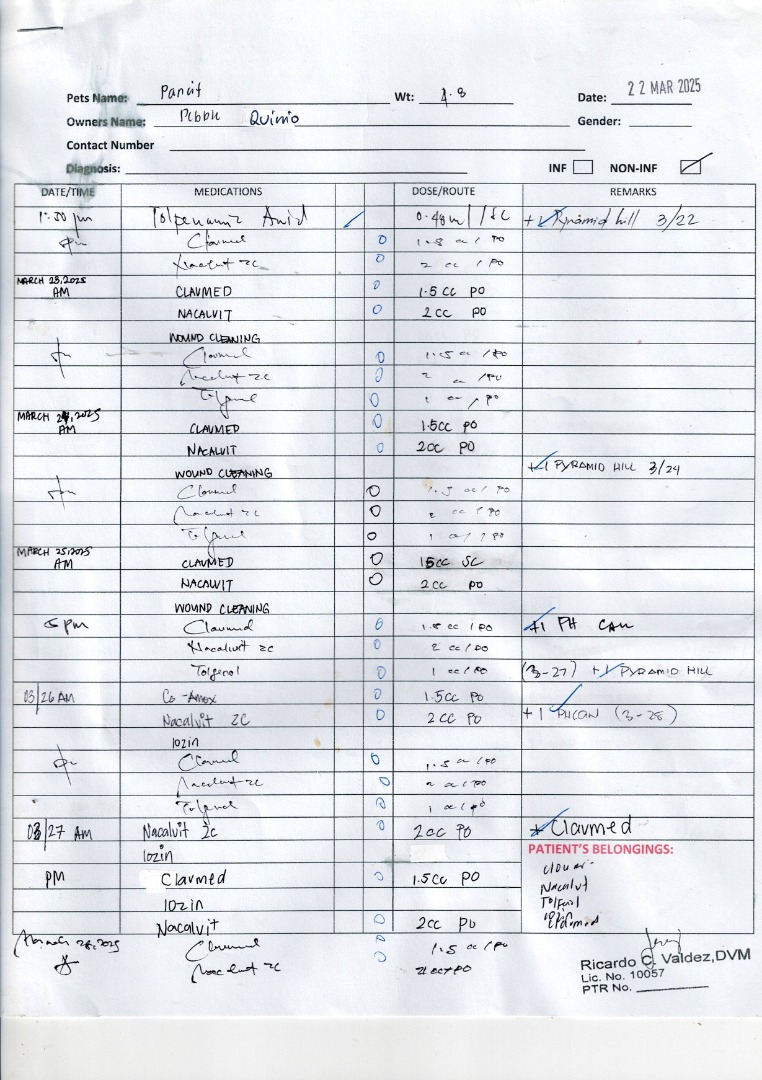 22 MAR 2025
Pets Name: Pancit Wt: 4.8 Date:
Owners Name: Quirio Gender:
Contact Number
Diagnosis: INF NON-INF
DATE/TIME MEDICATIONS DOSE/ROUTE REMARKS
1:30 pm 0.48ml / SC +1 Pyramid hill 3/22
pm Clavmed 1.5 cc / PO
Nacalvit 2C 2 cc / PO
MARCH 23,2025
AM CLAVMED 1.5 CC PO
NACALVIT 2CC PO
WOUND CLEANING
pm Clavmed 1.5 cc / PO
Nacalvit 2C 2 cc / PO
Tolfenol 1 cc / PO
MARCH 24,2025
AM CLAVMED 1.5CC PO
NACALVIT 2CC PO
WOUND CLEANING +1 PYRAMID HILL 3/24
pm Clavmed 1.5 cc / PO
Nacalvit 2C 2 cc / PO
Tolfenol 1 cc / PO
MARCH 25,2025
AM CLAVMED 1.5CC SC
NACALVIT 2CC PO
WOUND CLEANING
5 pm Clavmed 1.5 cc / PO +1 PH CAN
Nacalvit 2C 2 cc / PO
Tolfenol 1 cc / PO (3-27) +1 PYRAMID HILL
03/26 AM Co-Amox 1.5CC PO
Nacalvit 2C 2CC PO +1 PHCAN (3-28)
lozin
pm Clavmed 1.5 cc / PO
Nacalvit 2C 2 cc / PO
Tolfenol 1 cc / PO
03/27 AM Nacalvit 2c 2cc PO + Clavmed
lozin PATIENT'S BELONGINGS:
PM Clavmed 1.5cc PO
Nacalvit
lozin Tolfenol
Nacalvit 2cc PO
March 28,2025 Clavmed 1.5 cc / PO
Nacalvit 2C 2 cc PO
Ricardo C. Valdez, DVM
Lic. No. 10057
PTR No.